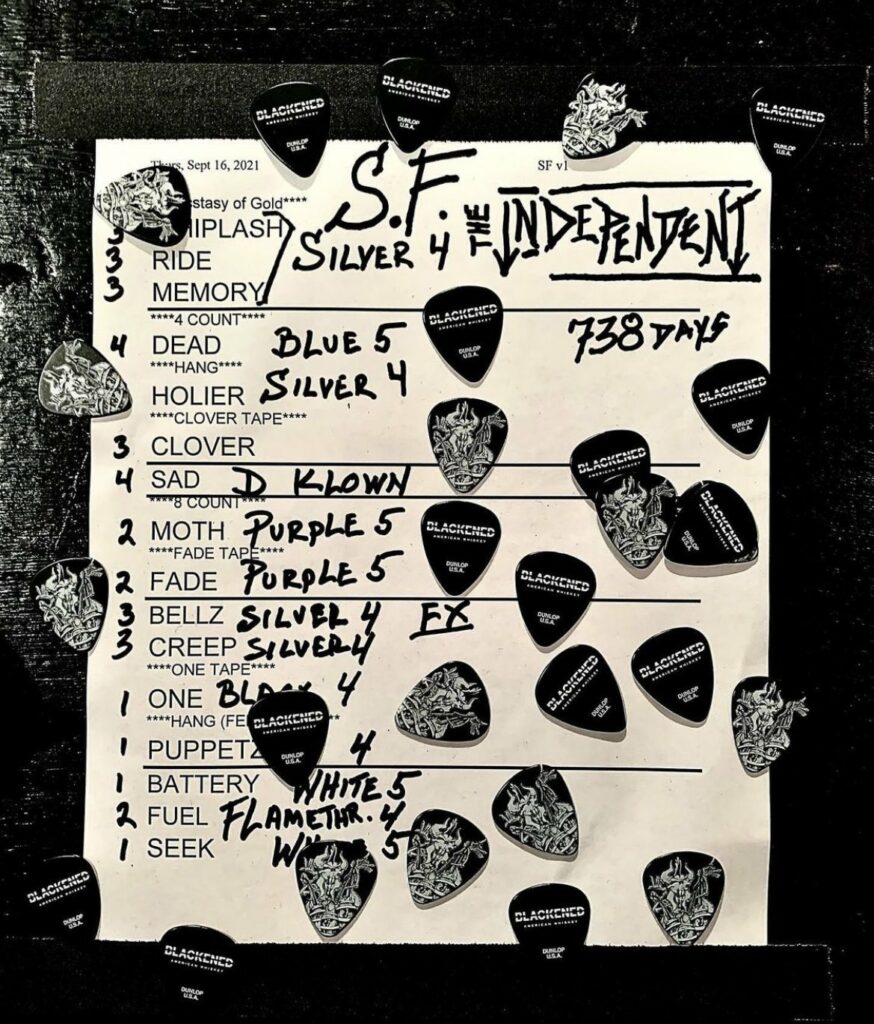 BLACKENED
AMERICAN WHISKEY
DUNLOP
U.S.A.
BLACKENED
AMERICAN WHISKEY
DUNLOP
U.S.A.
BLACKENED
AMERICAN WHISKEY
DUNLOP
U.S.A.
Thurs, Sept 16, 2021
SF v1
S.F. THE INDEPENDENT
stasy of Gold****
HIPLASH SILVER 4
3 RIDE
3 MEMORY
****4 COUNT****
738 DAYS
4 DEAD BLUE 5
****HANG****
HOLIER SILVER 4
****CLOVER TAPE****
3 CLOVER
4 SAD D KLOWN
****8 COUNT****
2 MOTH PURPLE 5
****FADE TAPE****
2 FADE PURPLE 5
3 BELLZ SILVER 4 FX
3 CREEP SILVER 4
****ONE TAPE****
1 ONE BLACK 4
****HANG (FE
1 PUPPETZ 4
1 BATTERY WHITE 5
2 FUEL FLAMETHR. 4
1 SEEK WHITE 5
BLACKENED
AMERICAN WHISKEY
DUNLOP
U.S.A.
BLACKENED
AMERICAN WHISKEY
DUNLOP
U.S.A.
BLACKENED
AMERICAN WHISKEY
BLACKENED
AMERICAN WHISKEY
DUNLOP
U.S.A.
BLACKENED
AMERICAN WHISKEY
DUNLOP
U.S.A.
BLACKENED
AMERICAN WHISKEY
DUNLOP
U.S.A.
BLACKENED
AMERICAN WHISKEY
DUNLOP
U.S.A.
BLACKENED
AMERICAN WHISKEY
DUNLOP
U.S.A.
BLACKENED
AMERICAN WHISKEY
DUNLOP
U.S.A.
BLACKENED
AMERICAN WHISKEY
DUNLOP
U.S.A.
BLACKENED
AMERICAN WHISKEY
DUNLOP
U.S.A.
BLACKENED
AMERICAN WHISKEY
DUNLOP
U.S.A.